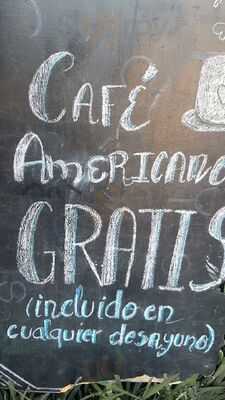 CAFÉ
AMERICANO
GRATIS
(incluido en
cualquier desayuno)